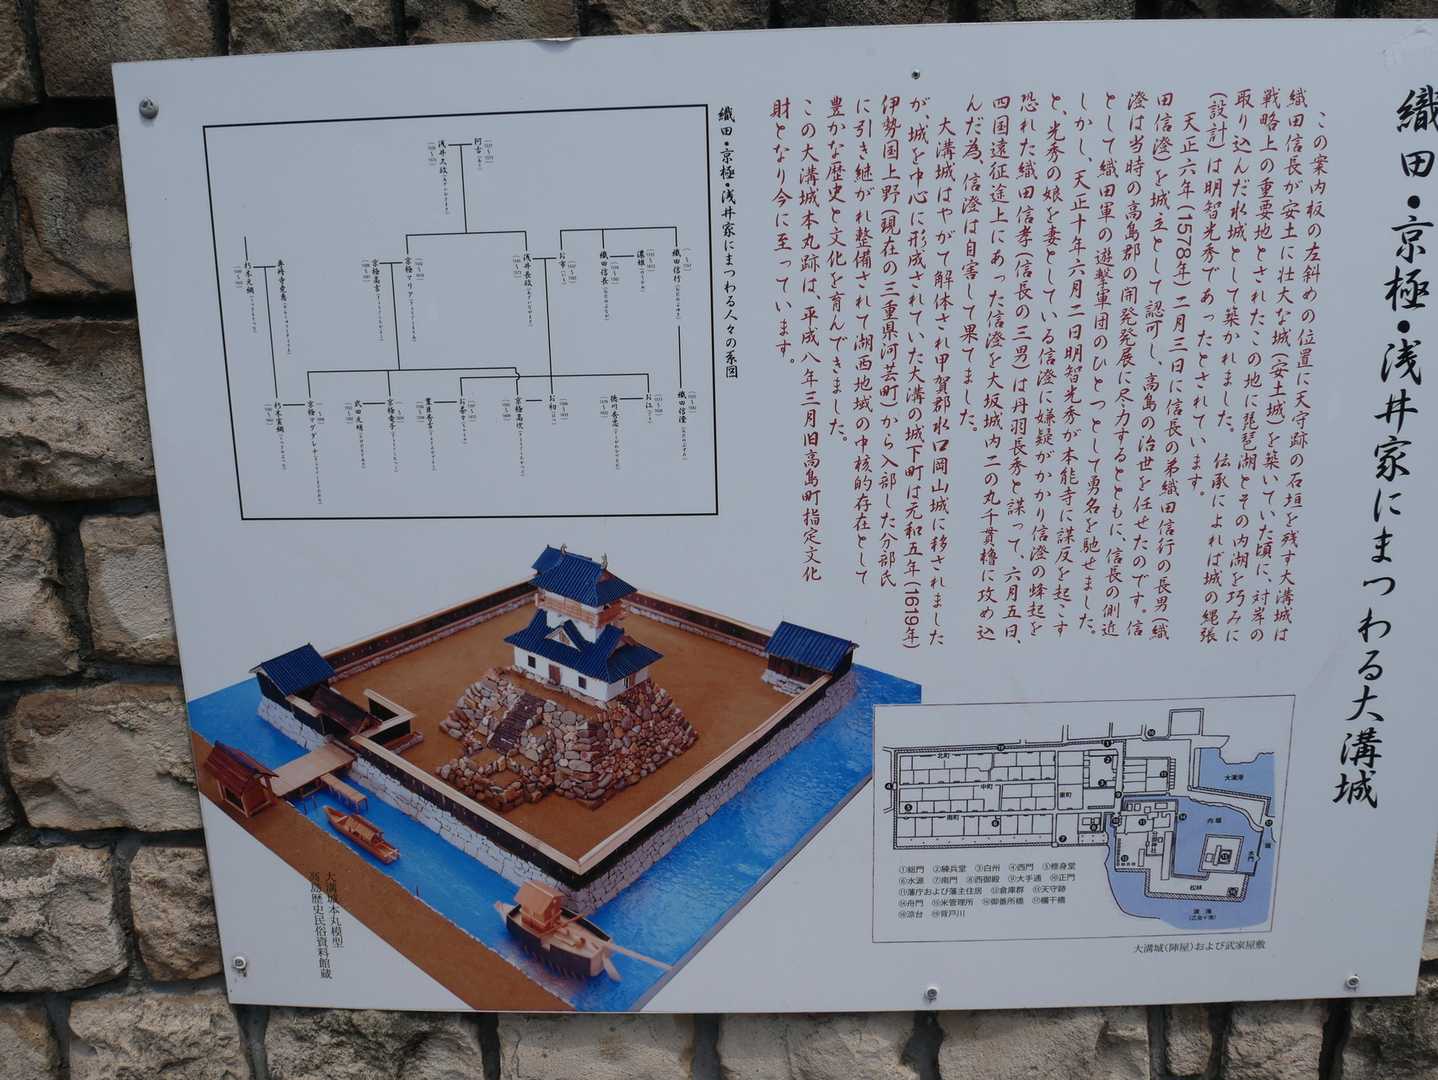 織田・京極・浅井家にまつわる大溝城
この案内板の左斜めの位置に天守跡の石垣を残す大溝城は
織田信長が安土に壮大な城(安土城)を築いていた頃に、対岸の
戦略上の重要地とされたこの地に琵琶湖とその内湖を巧みに
取り込んだ水城として築かれました。伝承によれば城の縄張
(設計)は明智光秀であったとされています。
天正六年(1578年)二月三日に信長の弟織田信行の長男(織
田信澄)を城主として認可し、高島の治世を任せたのです。信
澄は当時の高島郡の開発発展に尽力するとともに、信長の側近
として織田軍の遊撃軍団のひとつとして勇名を馳せました。
しかし、天正十年六月二日明智光秀が本能寺に謀反を起こす
と、光秀の娘を妻としている信澄に嫌疑がかかり信澄の蜂起を
恐れた織田信孝(信長の三男)は丹羽長秀と謀って、六月五日、
四国遠征途上にあった信澄を大坂城内二の丸千貫櫓に攻め込
んだ為、信澄は自害して果てました。
大溝城はやがて解体され甲賀郡水口岡山城に移されました
が、城を中心に形成されていた大溝の城下町は元和五年(1619年)
伊勢国上野(現在の三重県河芸町)から入部した分部氏
に引き継がれ整備されて湖西地域の中核的存在として
豊かな歴史と文化を育んできました。
この大溝城本丸跡は、平成八年三月旧高島町指定文化
財となり今に至っています。
織田・京極・浅井家にまつわる人々の系図
阿古
浅井久政
織田信行
濃姫
織田信長
お市
浅井長政
京極マリア
京極高吉
朽木元綱
織田信澄
お江
徳川秀忠
お初
京極高次
お茶々
豊臣秀吉
京極竜子
武田元明
京極マグダレナ
朽木宣綱
大溝城本丸模型
高島歴史民俗資料館蔵
北町
中町
南町
大溝港
内堀
松林
①総門 ②騎兵堂 ③白州 ④西門 ⑤修身堂
⑥水源 ⑦南門 ⑧西御殿 ⑨大手通 ⑩正門
⑪藩庁および藩主住居 ⑫倉庫群 ⑬天守跡
⑭舟門 ⑮米管理所 ⑯御番所橋 ⑰欄干橋
⑱涼台 ⑲背戸川
大溝城(陣屋)および武家屋敷